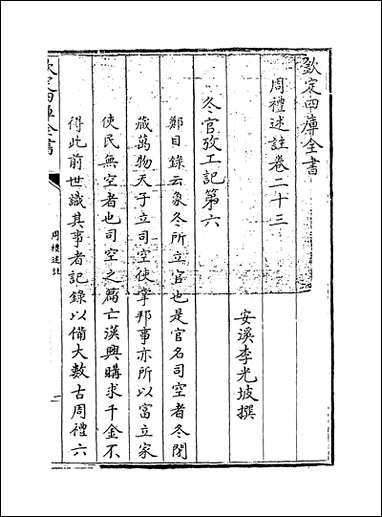 欽定四庫全書
周禮述註卷二十三
安溪李光坡撰
冬官攷工記第六
鄭目錄云象冬所立官也是官名司空者冬閉
藏萬物天子立司空使掌邦事亦所以富立家
使民無空者也司空之篇亡漢興購求千金不
得此前世識其事者記錄以備大數古周禮六
欽定四庫全書
周禮述註
一